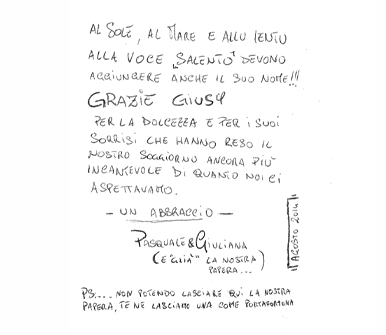 AL SOLE, AL MARE E ALLU IENTU
ALLA VOCE "SALENTO" DEVONO
AGGIUNGERE ANCHE IL SUO NOME!!!
GRAZIE GIUSY
PER LA DOLCEZZA E PER I SUOI
SORRISI CHE HANNO RESO IL
NOSTRO SOGGIORNO ANCORA PIÙ
INCANTEVOLE DI QUANTO NOI CI
ASPETTAVAMO.
- UN ABBRACCIO -
PASQUALE & GIULIANA
(E "GLIÀ" LA NOSTRA
PAPERA...)
AGOSTO 2014
PS.... NON POTENDO LASCIARE QUI LA NOSTRA
PAPERA, TE NE LASCIAMO UNA COME PORTAFORTUNA